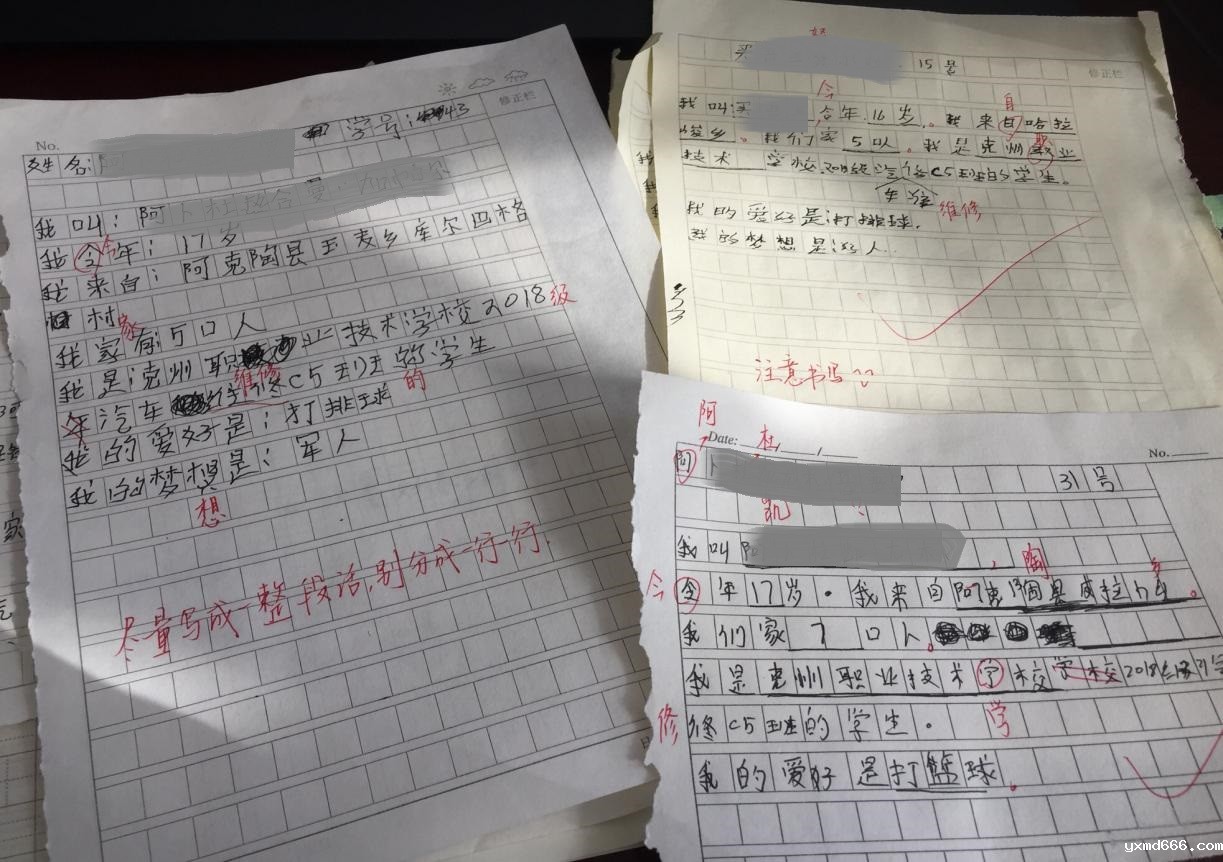 No.
修正栏
姓名:
学号:43
我叫:阿
我今年:17岁
今
我来自:阿克陶县玉麦乡库尔巴格
村
我家有5口人
家
我是克州职业技术学校2018级
汽车维修C5班的学生
我的爱好是:打排球
的
我的梦想是:军人
想
尽量写成一整段话,别分成一行一行.
15号
修正栏
我叫:
今年16岁。我来自哈拉
今
自
峻乡。我们家5口人。我是克州职业
职
技术学校2018级汽修C5班的学生。
维修
我的爱好是:打排球.
我的梦想是:好人..
注意书写
阿
Date:
杜
No.
31号
凯
我叫
陶
乡
今
今年17岁.我来自阿克陶县
我们家7口人。
我是克州职业技术学校学校2018级
修
修C5班的学生.
学
我的爱好是打篮球.
yxmd666.com